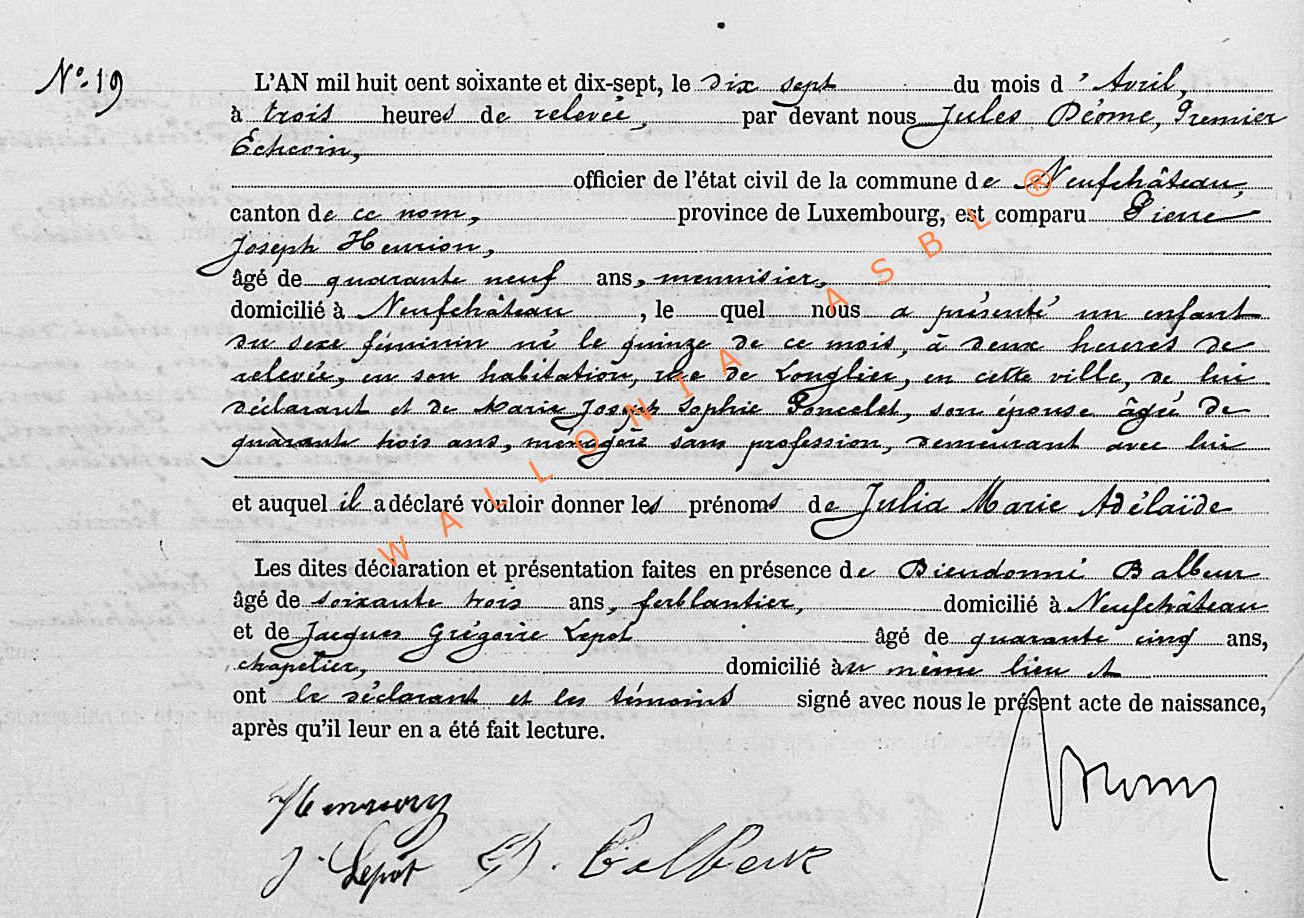 N° 19
L'AN mil huit cent soixante et dix-sept, le dix sept du mois d'Avril,
à trois heures de relevée, par devant nous Jules Déome, Premier
Echevin,
officier de l'état civil de la commune de Neufchâteau,
canton de ce nom, province de Luxembourg, est comparu Pierre
Joseph Henrion,
âgé de quarante neuf ans, menuisier,
domicilié à Neufchâteau, le quel nous a présenté un enfant
du sexe féminin né le quinze de ce mois, à deux heures de
relevée, en son habitation, rue de Longlier, en cette ville, de lui
déclarant et de Marie Joseph Sophie Poncelet, son épouse âgée de
quarante trois ans, ménagère sans profession, demeurant avec lui
et auquel il a déclaré vouloir donner les prénoms de Julia Marie Adélaïde
Les dites déclaration et présentation faites en présence de Dieudonné Balbeur
âgé de soixante trois ans, ferblantier, domicilié à Neufchâteau
et de Jacques Grégoire Lepot âgé de quarante cinq ans,
chapelier, domicilié au même lieu et
ont le déclarant et les témoins signé avec nous le présent acte de naissance,
après qu'il leur en a été fait lecture.
Henrion
J. Lepot D. Balbeur
WALLONIA ASBL ®